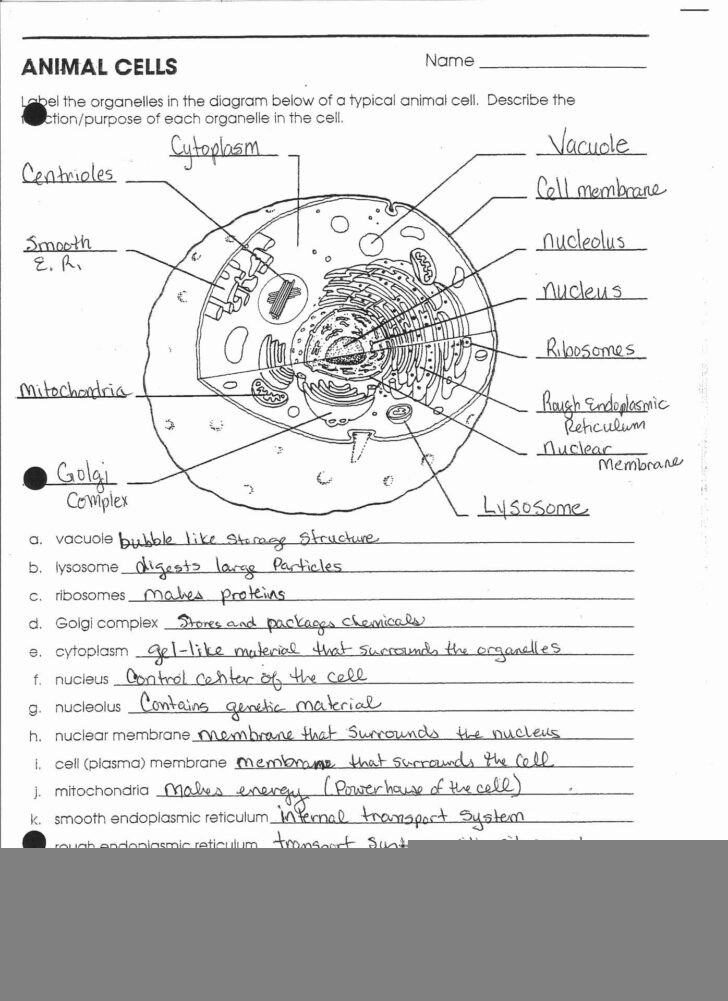 ANIMAL CELLS
Name
Label the organelles in the diagram below of a typical animal cell. Describe the
function/purpose of each organelle in the cell.
Cytoplasm
Vacuole
Centrioles
Cell membrane
Smooth
E. R.
nucleolus
nucleus
Ribosomes
Mitochondria
Rough Endoplasmic
Reticulum
Nuclear
Membrane
Golgi
Complex
Lysosome
a. vacuole bubble like storage structure
b. lysosome digests large Particles
c. ribosomes makes proteins
d. Golgi complex Stores and packages chemicals
e. cytoplasm gel-like material that surrounds the organelles
f. nucleus Control center of the cell
g. nucleolus Contains genetic material
h. nuclear membrane membrane that surrounds the nucleus
i. cell (plasma) membrane membrane that surrounds the cell
j. mitochondria makes energy (Powerhouse of the cell)
k. smooth endoplasmic reticulum internal transport system
rough endoplasmic reticulum transport